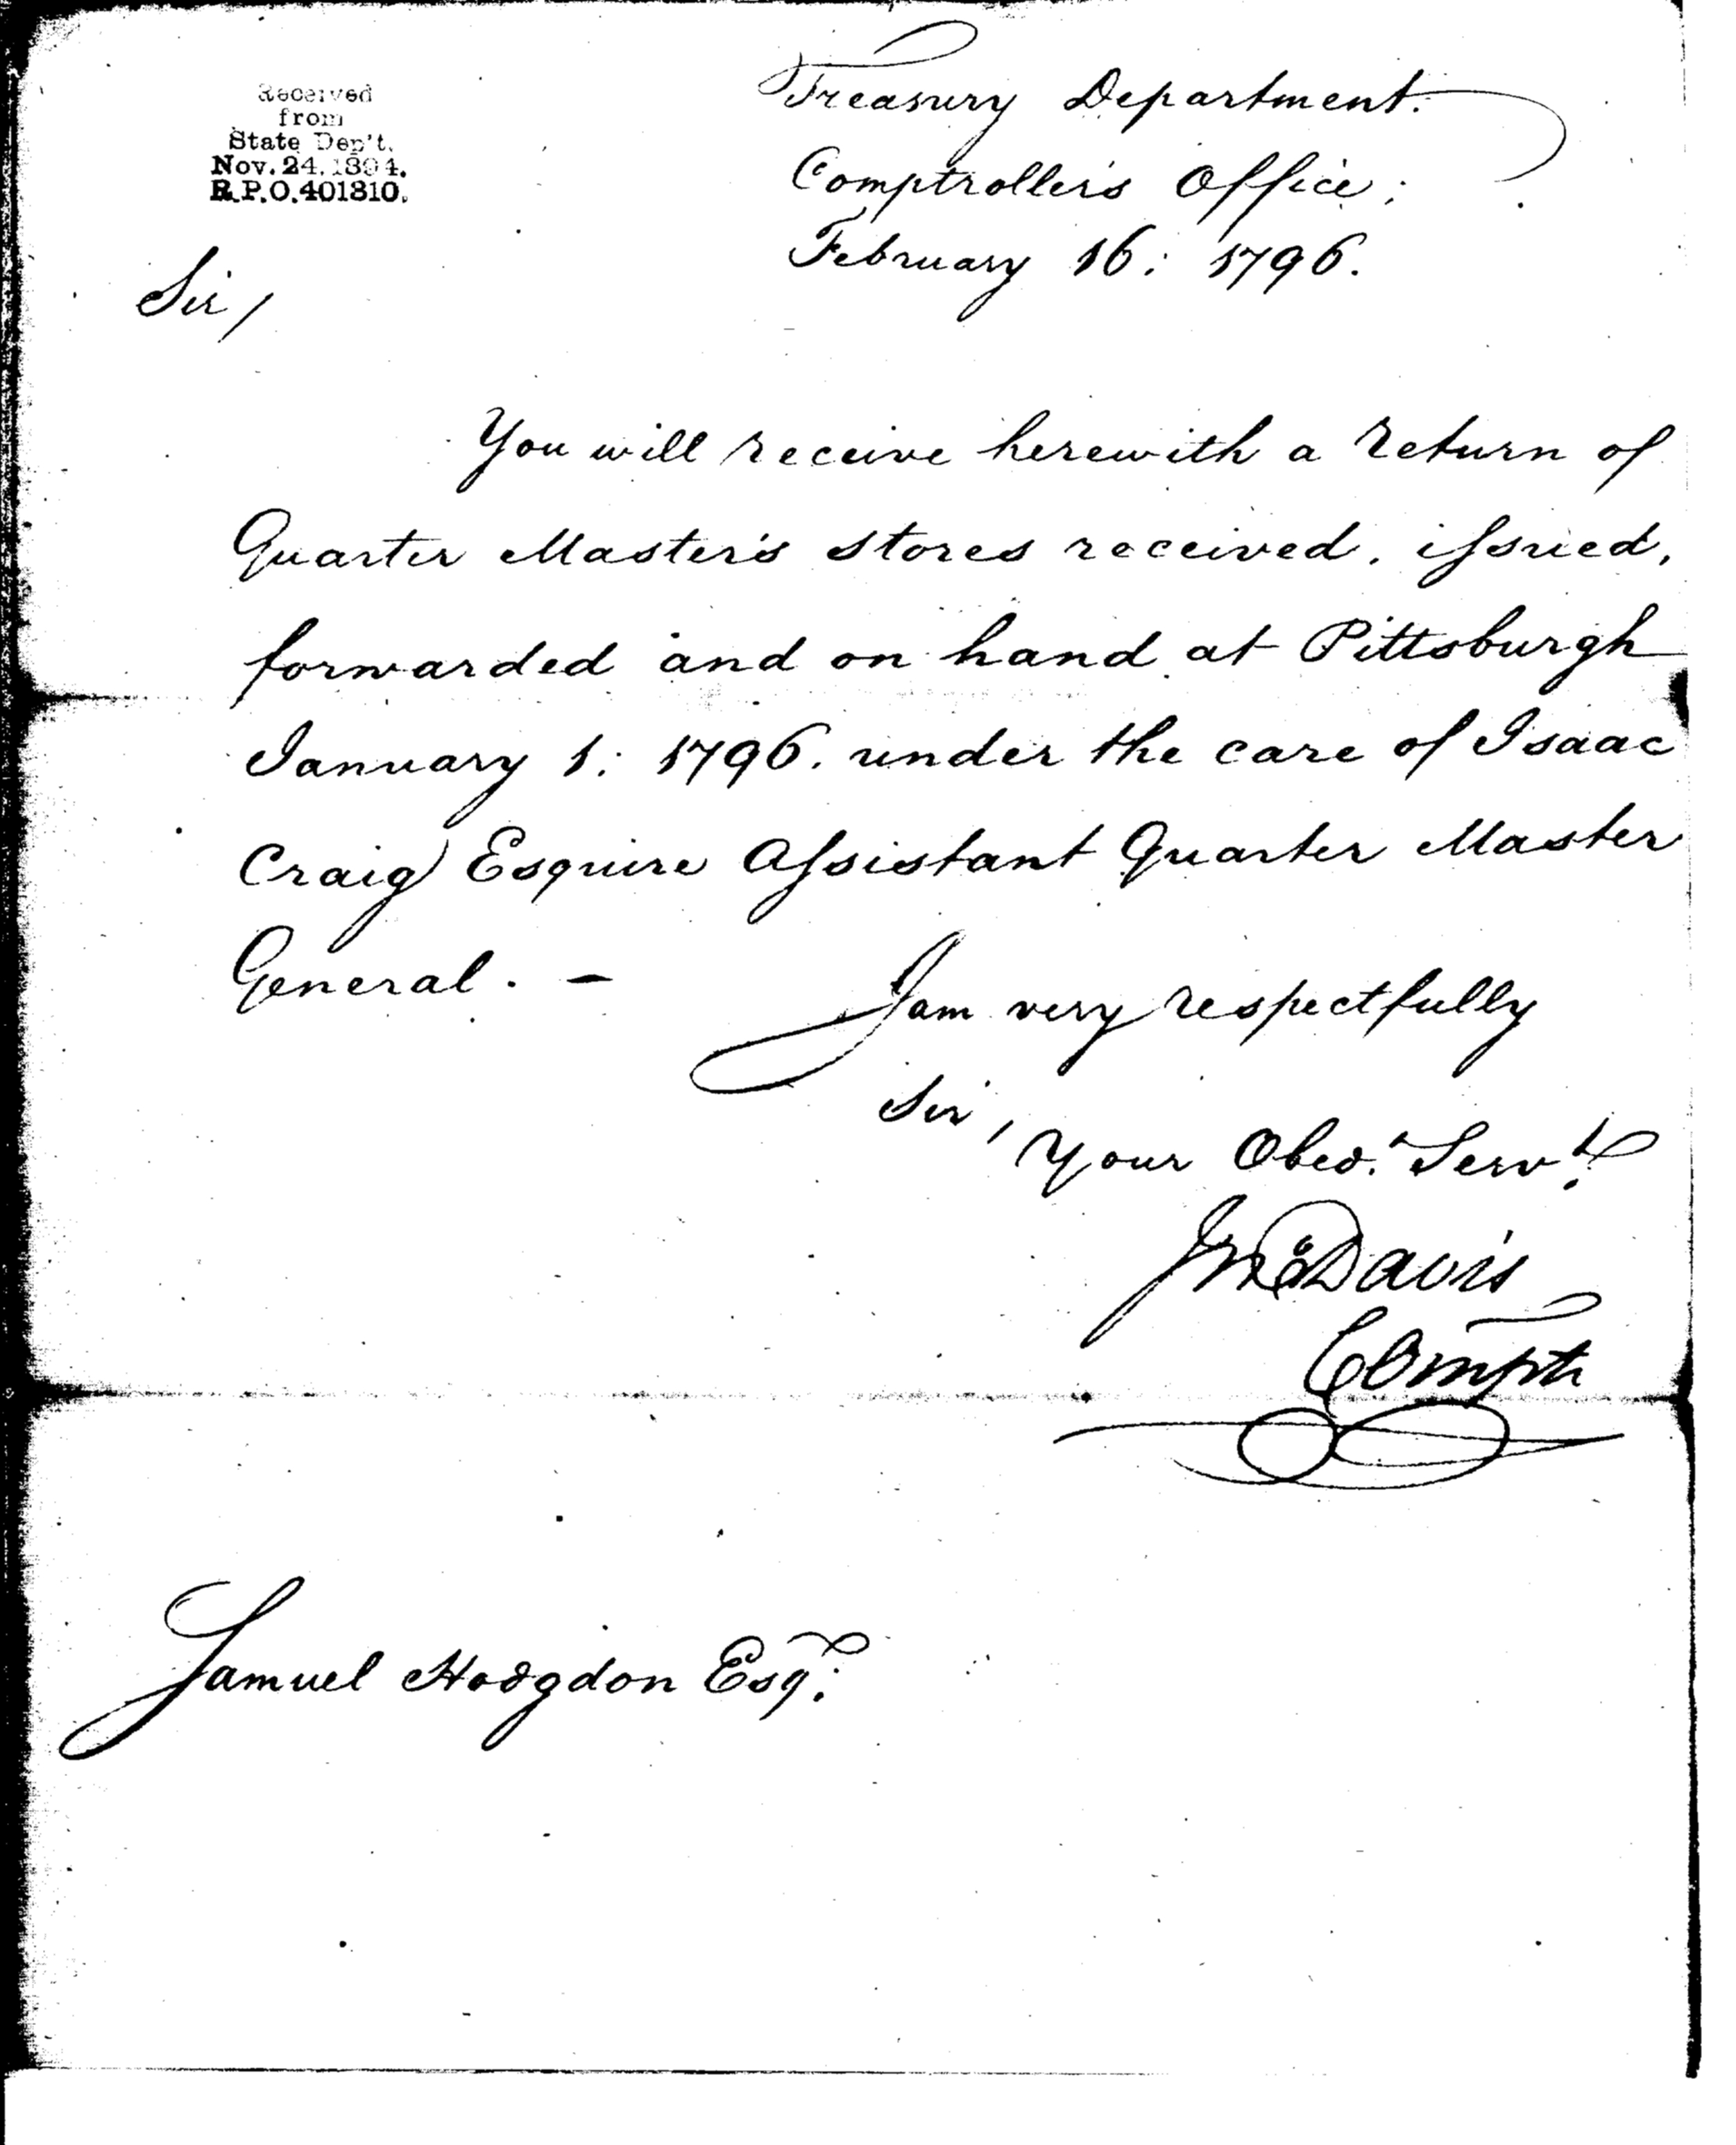 Received
from
State Dep't.
Nov. 24. 1894.
R.P.O. 401810.
Treasury Department.
Comptroller's Office;
February 16: 1796.
Sir /
You will receive herewith a return of
Quarter Master's stores received, issued,
forwarded and on hand at Pittsburgh
January 1: 1796. under the care of Isaac
Craig Esquire Assistant Quarter Master
General. –
I am very respectfully
Sir,
Your Obed.t Serv.t
Jno Davis
Comptr
Samuel Hodgdon Esqr.